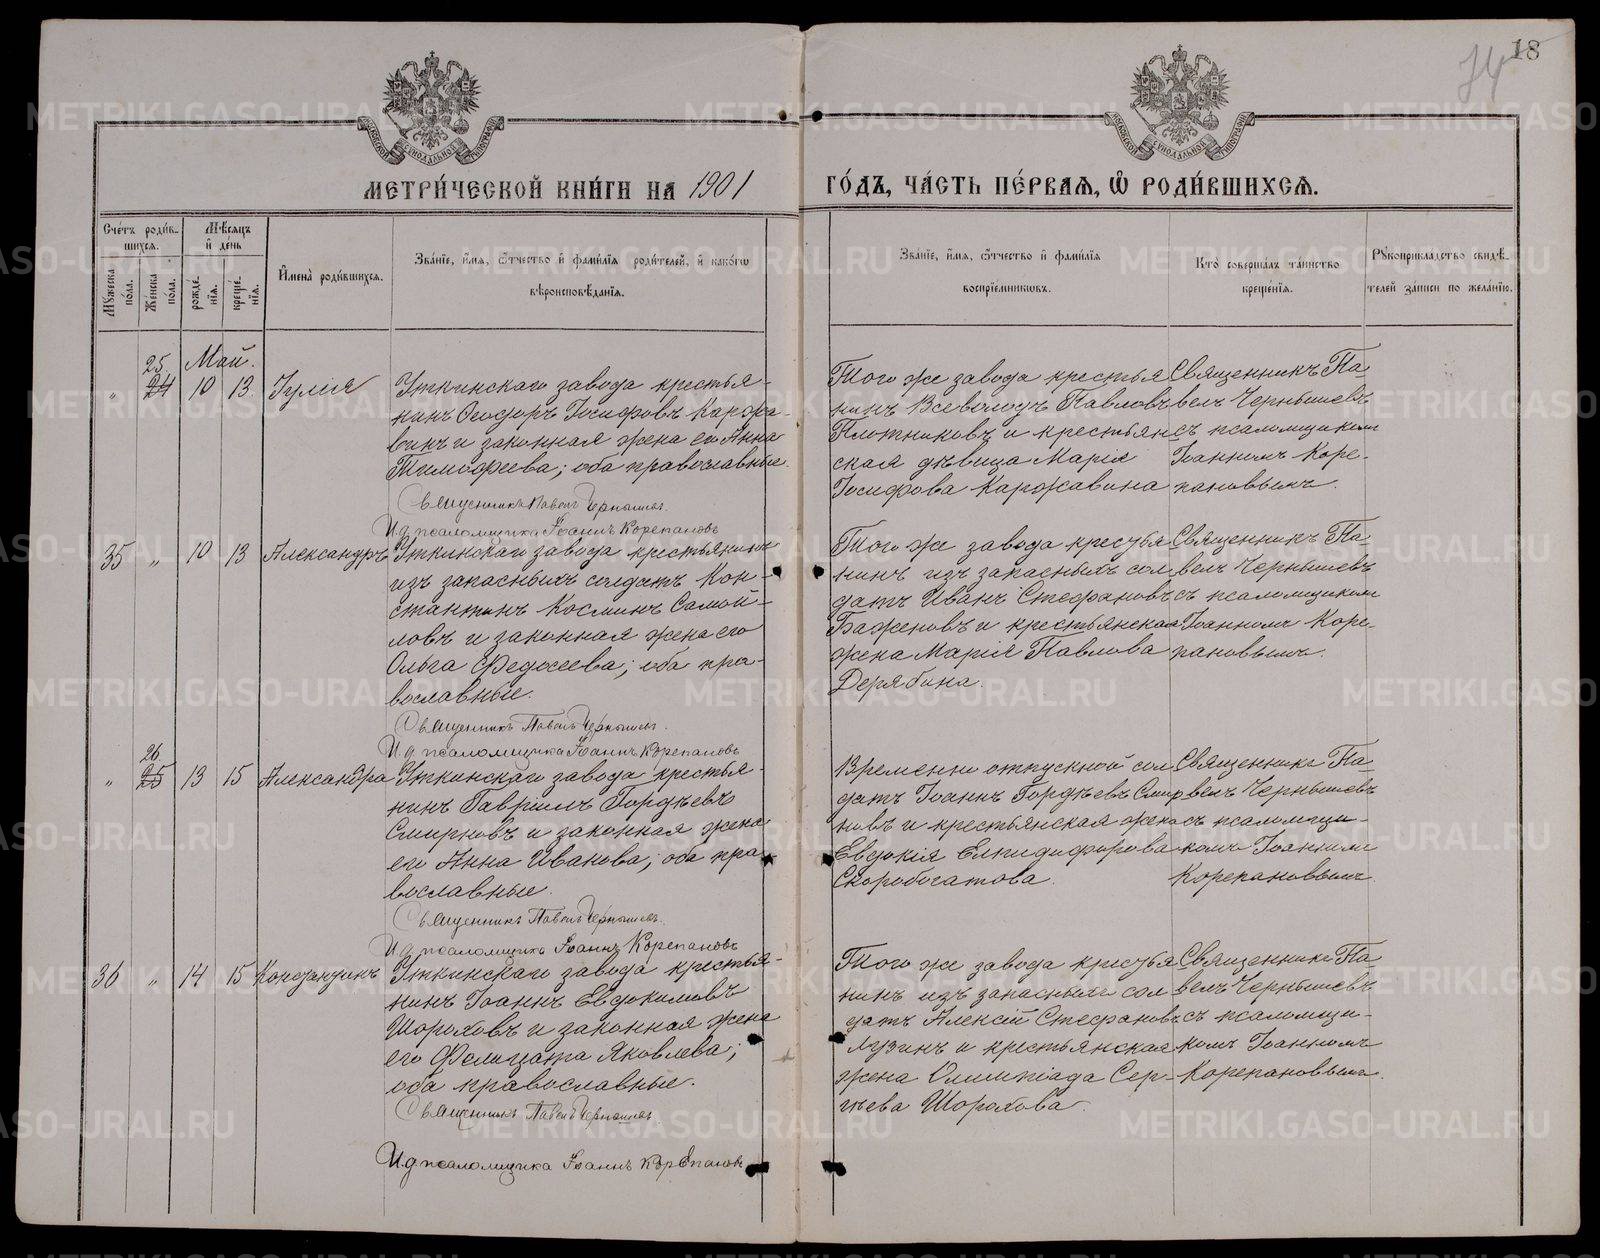 18
74
МОСКОВСКОЙ СѴНОДАЛЬНОЙ ТИПОГРАФІИ
МОСКОВСКОЙ СѴНОДАЛЬНОЙ ТИПОГРАФІИ
МЕТРИ́ЧЕСКОЙ КНИ́ГИ НА 1901
ГО́ДЪ, ЧА́СТЬ ПЕ́РВАѦ, Ѡ҆ РОДИ́ВШИХСѦ.
Сче́тъ роди́в-
шихсѧ.
Мꙋ́жеска по́ла.
Же́нска по́ла.
Мѣ́сѧцъ
и҆ де́нь
рожде́-
нїѧ.
креще́-
нїѧ.
И҆мена̀ роди́вшихсѧ.
Зва́нїе, и҆́мѧ, ѻ҆́тчество и҆ фами́лїѧ роди́телей, и҆ како́гѡ
вѣроисповѣ́данїѧ.
Зва́нїе, и҆́мѧ, ѻ҆́тчество и҆ фами́лїѧ
воспрїе́мникѡвъ.
Кто̀ соверша́лъ та́инство
креще́нїѧ.
Рꙋкоприкла́дство свидѣ́-
телей за́писи по жела́нїю.
Май.
25
„ 24 10 13. Іулія
Уткинскаго завода крестья-
нинъ Ѳеодоръ Іосифовъ Каржа-
винъ и законная жена его Анна
Тимофеева; оба православные.
Священникъ Павелъ Чернышевъ.
И.д. псаломщика Іоаннъ Корепановъ
Того же завода крестья
нинъ Всеволодъ Павловъ
Плотниковъ и крестьян
ская дѣвица Марія
Іосифова Каржавина
Священникъ Па
велъ Чернышевъ
съ псаломщикомъ
Іоанномъ Коре-
пановымъ.
35 „ 10 13 Александръ
Уткинскаго завода крестьянинъ
изъ запасныхъ солдатъ Кон-
стантинъ Косминъ Самой-
ловъ и законная жена его
Ольга Федосеева; оба пра-
вославные.
Священникъ Павелъ Чернышевъ.
И.д. псаломщика Іоаннъ Корепановъ
Того же завода крестья
нинъ изъ запасныхъ сол
датъ Иванъ Стефановъ
Баженовъ и крестьянская
жена Марія Павлова
Дерябина.
Священникъ Па
велъ Чернышевъ
съ псаломщикомъ
Іоанномъ Коре-
пановымъ.
26
„ 25 13 15 Александра
Уткинскаго завода крестья-
нинъ Гавріилъ Гордѣевъ
Смирновъ и законная жена
его Анна Иванова; оба пра-
вославные.
Священникъ Павелъ Чернышевъ.
И.д. псаломщика Іоаннъ Корепановъ
Временно отпускной сол
датъ Іоаннъ Гордѣевъ Смир
новъ и крестьянская жена
Евдокія Елпидифорова
Скоробогатова.
Священникъ Па-
велъ Чернышевъ
съ псаломщи-
комъ Іоанномъ
Корепановымъ
36 „ 14 15 Константинъ
Уткинскаго завода крестья-
нинъ Іоаннъ Евдокимовъ
Шороховъ и законная жена
его Фелицата Яковлева;
оба православные.
Священникъ Павелъ Чернышевъ
И.д. псаломщика Іоаннъ Корепановъ
Того же завода крестья
нинъ изъ запасныхъ сол
датъ Алексій Стефановъ
Лузинъ и крестьянская
жена Олимпіада Сер-
гѣева Шорохова.
Священникъ Па-
велъ Чернышевъ
съ псаломщи-
комъ Іоанномъ
Корепановымъ.
METRIKI.GASO-URAL.RU